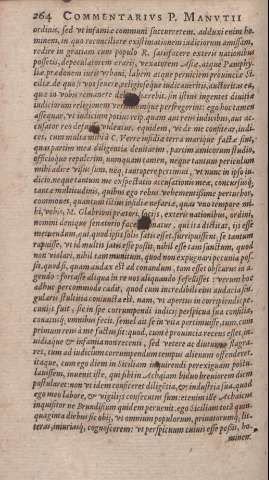 264 COMMENTARIUS P. MANUTII
ordinis, sed et infamiæ communi succurrerem, adduxi enim ho-
minem, in quo reconciliare existimationem iudiciorum amissam,
redire in gratiam cum populo R. satisfacere exteris nationibus
possetis, depeculatorem ærarij, vexatorem Asiæ, atque Pamphy-
liæ, prædonem iuris urbani, labem atque perniciem prouinciæ Si-
ciliæ. de quo si vos seuere, religioseque iudicaueritis, auctoritas ea,
quæ in vobis remanere debet, hærebit. sin istius ingentes diuitiæ
iudiciorum religionem veritatemque perfregerint: ego hoc tamen
assequar, vt iudicium potius reip. quam aut reus iudicibus, aut ac-
cusator reo defuisse videatur. equidem, vt de me confitear, iudi-
ces, cum multæ mihi a C. Verre insidiæ terra marique factæ sint,
quas partim mea diligentia deuitarim, partim amicorum studio,
officioque repulerim, numquam tamen, neque tantum periculum
mihi adire visus sum, neq. tantopere pertimui, vt nunc in ipso iu-
dicio. neque tantum me exspectatio accusationis meæ, concursusq.
tantæ multitudinis, quibus ego rebus vehementissime perturbor,
commouet, quantum istius insidiæ nefariæ, quas vno tempore mi-
hi, vobis, M. Glabrioni prætori, socijs, exteris nationibus, ordini,
nomini denique senatorio facere conatur, qui ita dictitat, ijs esse
metuendum, qui quod ipsis solis satis esset, surripuissent. se tantum
rapuisse, vt id multis satis esse possit, nihil esse tam sanctum, quod
non violari, nihil tam munitum, quod non expugnari pecunia pos-
sit. quod si, quam audax est ad conandum, tam esset obscurus in a-
gendo: fortasse aliqua in re nos aliquando fefellisset. verum hoc
adhuc percommode cadit, quod cum incredibili eius audacia sin-
gularis stultitia coniuncta est. nam, vt apertus in corripiendis pe-
cunijs fuit, sic in spe corrumpendi iudicij perspicua sua consilia,
conatusq. omnibus fecit. semel ait se in vita pertimuisse, tum, cum
primum reus a me factus sit: quod, cum e prouincia recens esset, in-
uidiaque & infamia non recenti, sed vetere ac diuturna flagra-
ret, tum ad iudicium corrumpendum tempus alienum offenderet.
itaque, cum ego diem in Siciliam inquirendi perexiguam postu-
lauissem, inuenit iste, qui sibi in Achaiam biduo breuiorem diem
postularet: non vt idem conficeret diligentia, & industria sua, quod
ego meo labore, & vigilijs consecutus sum: etenim ille Achaicus
inquisitor ne Brundisium quidem peruenit. ego Siciliam totam quin-
quaginta diebus sic obij, vt omnium populorum, priuatorumq. lit-
teras, iniuriasq. cognoscerem: vt perspicuum cuiuis esse possit, ho-
minem